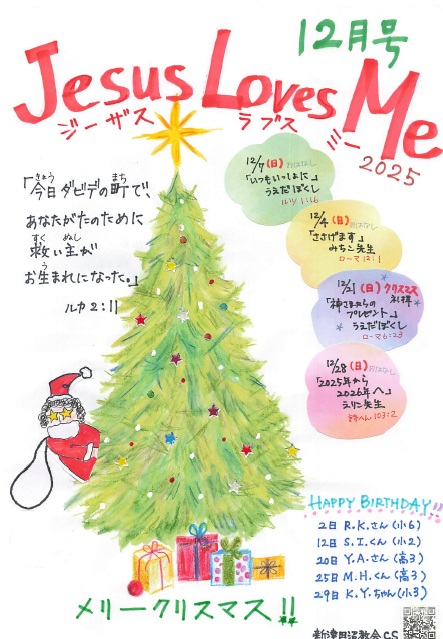 12月号
Jesus Loves Me
ジーザス ラブス ミー
2025
「今日ダビデの町で、
きょう まち
あなたがたのために
救い主が
すく ぬし
お生まれになった。」
う
ルカ 2:11
12/7(日)おはなし
「いつもいっしょに」
うえだぼくし
ルツ 1:16
12/4(日)おはなし
「ささげます」
みちこ先生
ローマ 12:1
12/21(日)クリスマス
礼拝
「神さまからの
プレゼント」
うえだぼくし
ローマ 6:23
12/28(日)おはなし
「2025年から
2026年へ」
えりこ先生
詩へん 103:2
HAPPY BIRTHDAY!!
2日 R.K.さん(小6)
12日 S.I.くん(小2)
20日 Y.A.さん(高3)
25日 M.H.くん(高3)
29日 K.Y.ちゃん(小3)
メリークリスマス!!
新津田沼教会CS